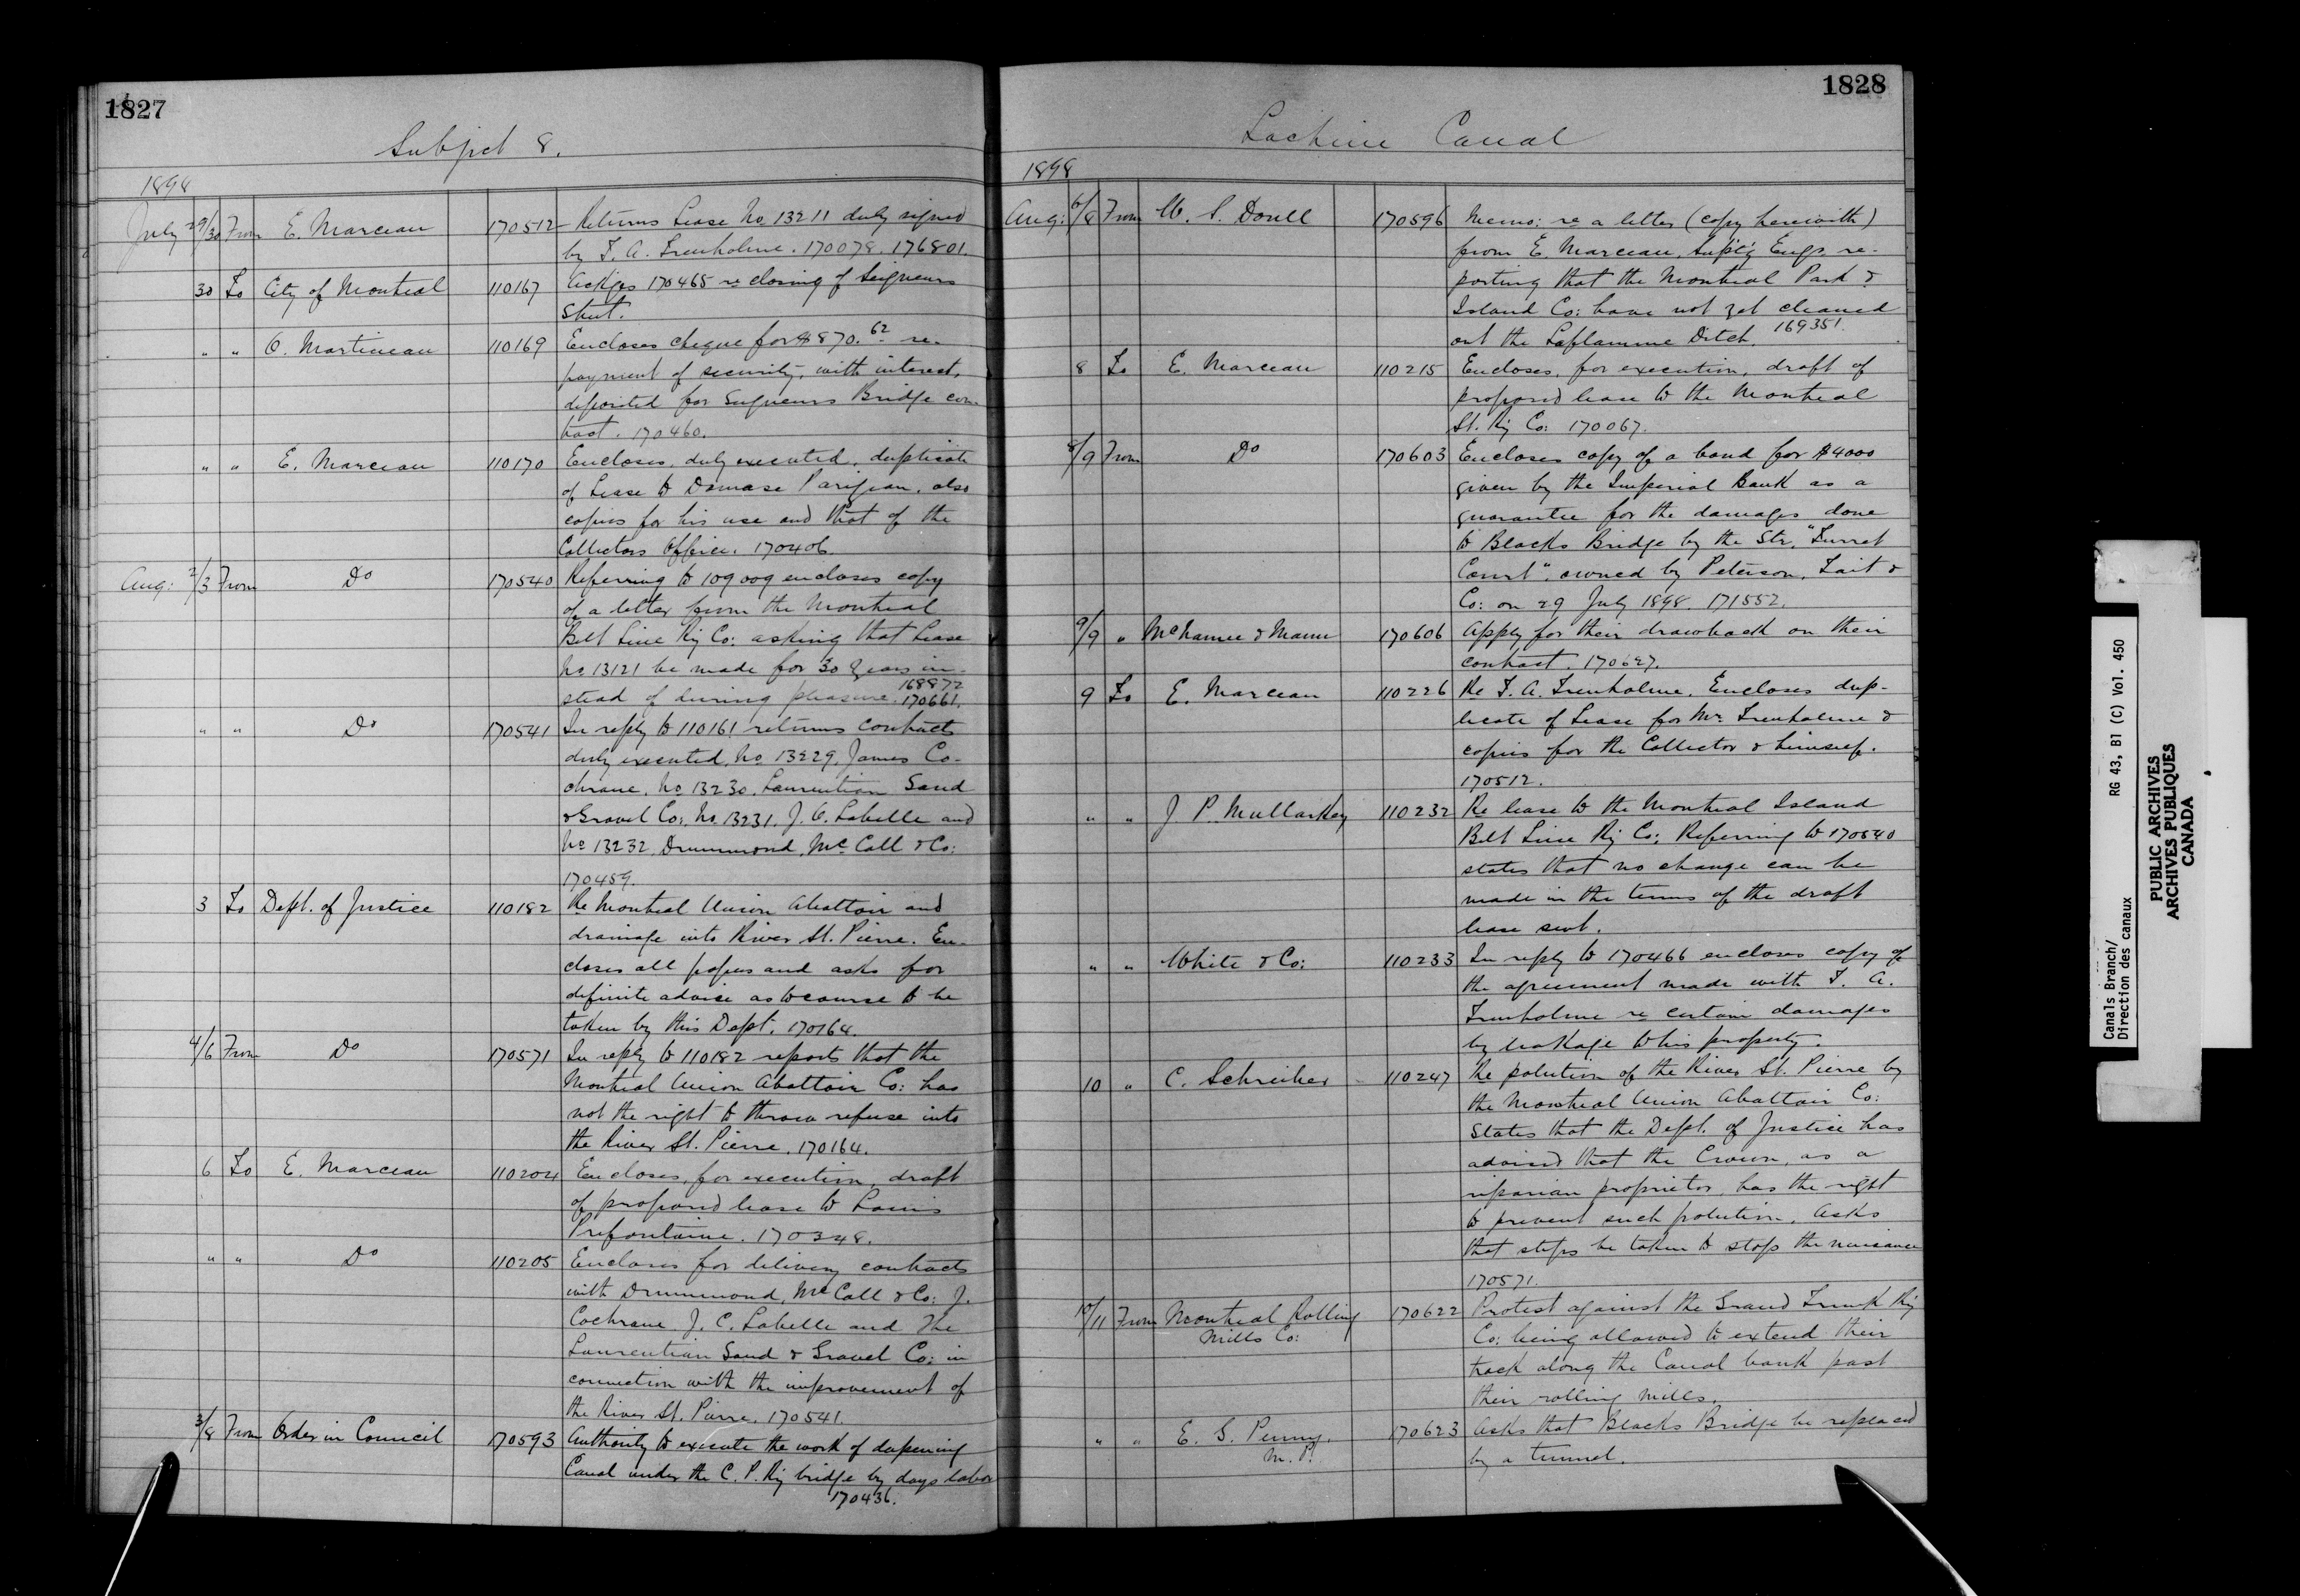 1827
Subject 8.
1898
July 29/30 From E. Marceau 170512 Returns Lease No 13211 duly signed
by T. A. Trenholme. 170078. 176801.
30 To City of Montreal 110167 Ackges 170465 re closing of Seigneurs
Street.
" " O. Martineau 110169 Encloses cheque for $870.62 re-
payment of security, with interest,
deposited for Seigneurs Bridge con-
tract. 170460.
" " E. Marceau 110170 Encloses, duly executed, duplicate
of Lease to Damase Parizeau, also
copies for his use and that of the
Collectors Office. 170406.
Aug: 2/3 From Do 170540 Referring to 109009 encloses copy
of a letter from the Montreal
Belt Line Ry Co: asking that Lease
No 13121 be made for 30 years in-
stead of during pleasure. 168872
170661.
" " Do 170541 In reply to 110161 returns contracts
duly executed, No 13229, James Co-
chrane, No 13230, Laurentian Sand
& Gravel Co:, No. 13231, J. C. Labelle and
No 13232, Drummond, McCall & Co:
170459.
3 To Dept. of Justice 110182 Re Montreal Union Abattoir and
drainage into River St. Pierre. En-
closes all papers and asks for
definite advice as to course to be
taken by this Dept. 170164.
4/6 From Do 170571 In reply to 110182 reports that the
Montreal Union Abattoir Co: has
not the right to throw refuse into
the River St. Pierre. 170164.
6 To E. Marceau 110204 Encloses, for execution, draft
of proposed lease to Louis
Prefontaine. 170348.
" " Do 110205 Encloses for delivery contracts
with Drummond, McCall & Co: J.
Cochrane J. C. Labelle and The
Laurentian Sand & Gravel Co: in
connection with the improvement of
the River St. Pierre. 170541.
3/8 From Order in Council 170593 Authority to execute the work of deepening
Canal under the C. P. Ry bridge by days labor
170436.
1828
Lachine Canal
1898
Aug: 6/8 From 170596 Memo: re a letter (copy herewith)
from E. Marceau, Supt'g Engr. re-
porting that the Montreal Park &
Island Co: have not yet cleaned
out the Laflamme Ditch. 169351.
8 To E. Marceau 110215 Encloses, for execution, draft of
proposed lease to the Montreal
St. Ry Co: 170067.
8/9 From Do 170603 Encloses copy of a bond for $4000
given by the Imperial Bank as a
guarantee for the damages done
to Blacks Bridge by the Str. "Turret
Court", owned by Peterson, Tait &
Co: on 29 July 1898. 171552.
9/9 " McNamee & Mann 170606 Apply for their drawback on their
contract. 170627.
9 To E. Marceau 110226 Re T. A. Trenholme. Encloses dup-
licate of Lease for Mr. Trenholme &
copies for the Collector & himself.
170512.
" " J. P. Mullarkey 110232 Re lease to the Montreal Island
Belt Line Ry Co: Referring to 170540
states that no change can be
made in the terms of the draft
lease sent.
" " White & Co: 110233 In reply to 170466 encloses copy of
the agreement made with T. A.
Trenholme re certain damages
by leakage to his property.
10 " C. Schreiber 110247 Re polution of the River St. Pierre by
the Montreal Union Abattoir Co:
States that the Dept. of Justice has
advised that the Crown, as a
riparian proprietor, has the right
to prevent such polution. Asks
that steps be taken to stop the nuisance
170571.
10/11 From Montreal Rolling 170622 Protest against the Grand Trunk Ry
Mills Co: Co: being allowed to extend their
track along the Canal bank past
their rolling mills.
" " E. G. Penny. 170623 Asks that Blacks Bridge be replaced
M. P. by a tunnel.
Canals Branch/ RG 43, B1 (C) Vol. 450
Direction des canaux
PUBLIC ARCHIVES
ARCHIVES PUBLIQUES
CANADA